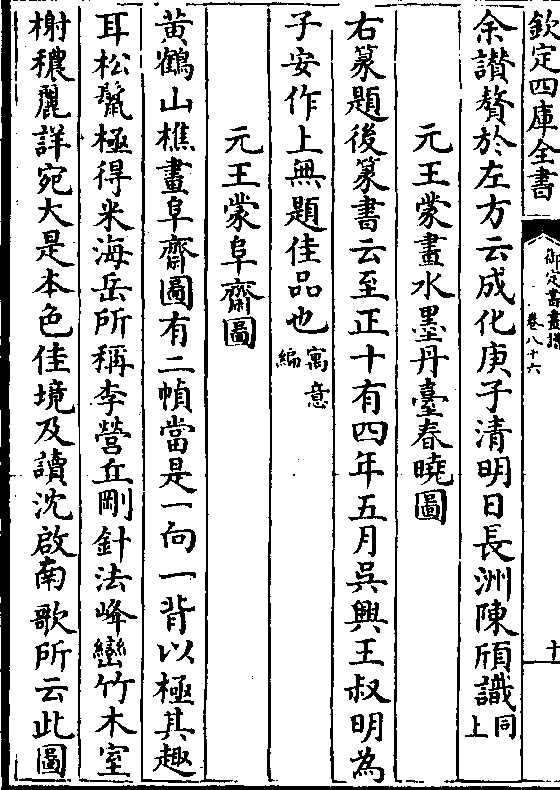 欽定四庫全書
御定書畫譜
卷八十六
十
余讃贅於左方云成化庚子清明日長洲陳頎識同上
元王蒙畫水墨丹臺春曉圖
右篆題後篆書云至正十有四年五月吳興王叔明為
子安作上無題佳品也寓意編
元王蒙阜齋圖
黃鶴山樵畫阜齋圖有二幀當是一向一背以極其趣
耳松鬣極得米海岳所稱李營丘剛針法峰巒竹木室
榭穠麗詳宛大是本色佳境及讀沈啟南歌所云此圖